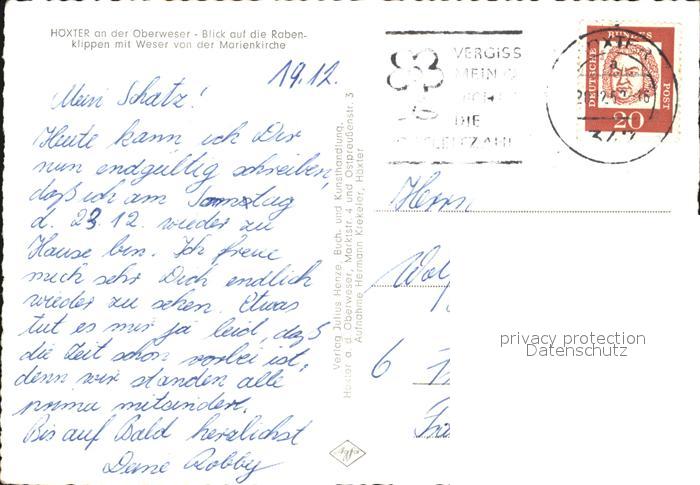 HÖXTER an der Oberweser - Blick auf die Raben-
klippen mit Weser von der Marienkirche
19.12.
Mein Schatz!
Heute kann ich Dir
nun endgültig schreiben,
daß ich am Samstag
d. 23.12. wieder zu
Hause bin. Ich freue
mich sehr Dich endlich
wieder zu sehen. Etwas
tut es mir ja leid, daß
die Zeit schon vorbei ist,
denn wir standen alle
prima miteinander.
Bis auf Bald herzlichst
Deine Robby
Verlag Julius Henze, Buch- und Kunsthandlung,
Höxter a. d. Oberweser, Marktstr. 4 und Ostpreußenstr. 3
Aufnahme Hermann Kiekeler, Höxter
VERGISS
MEIN
DIE
DEUTSCHE BUNDES POST
20
Herrn
6
privacy protection
Datenschutz